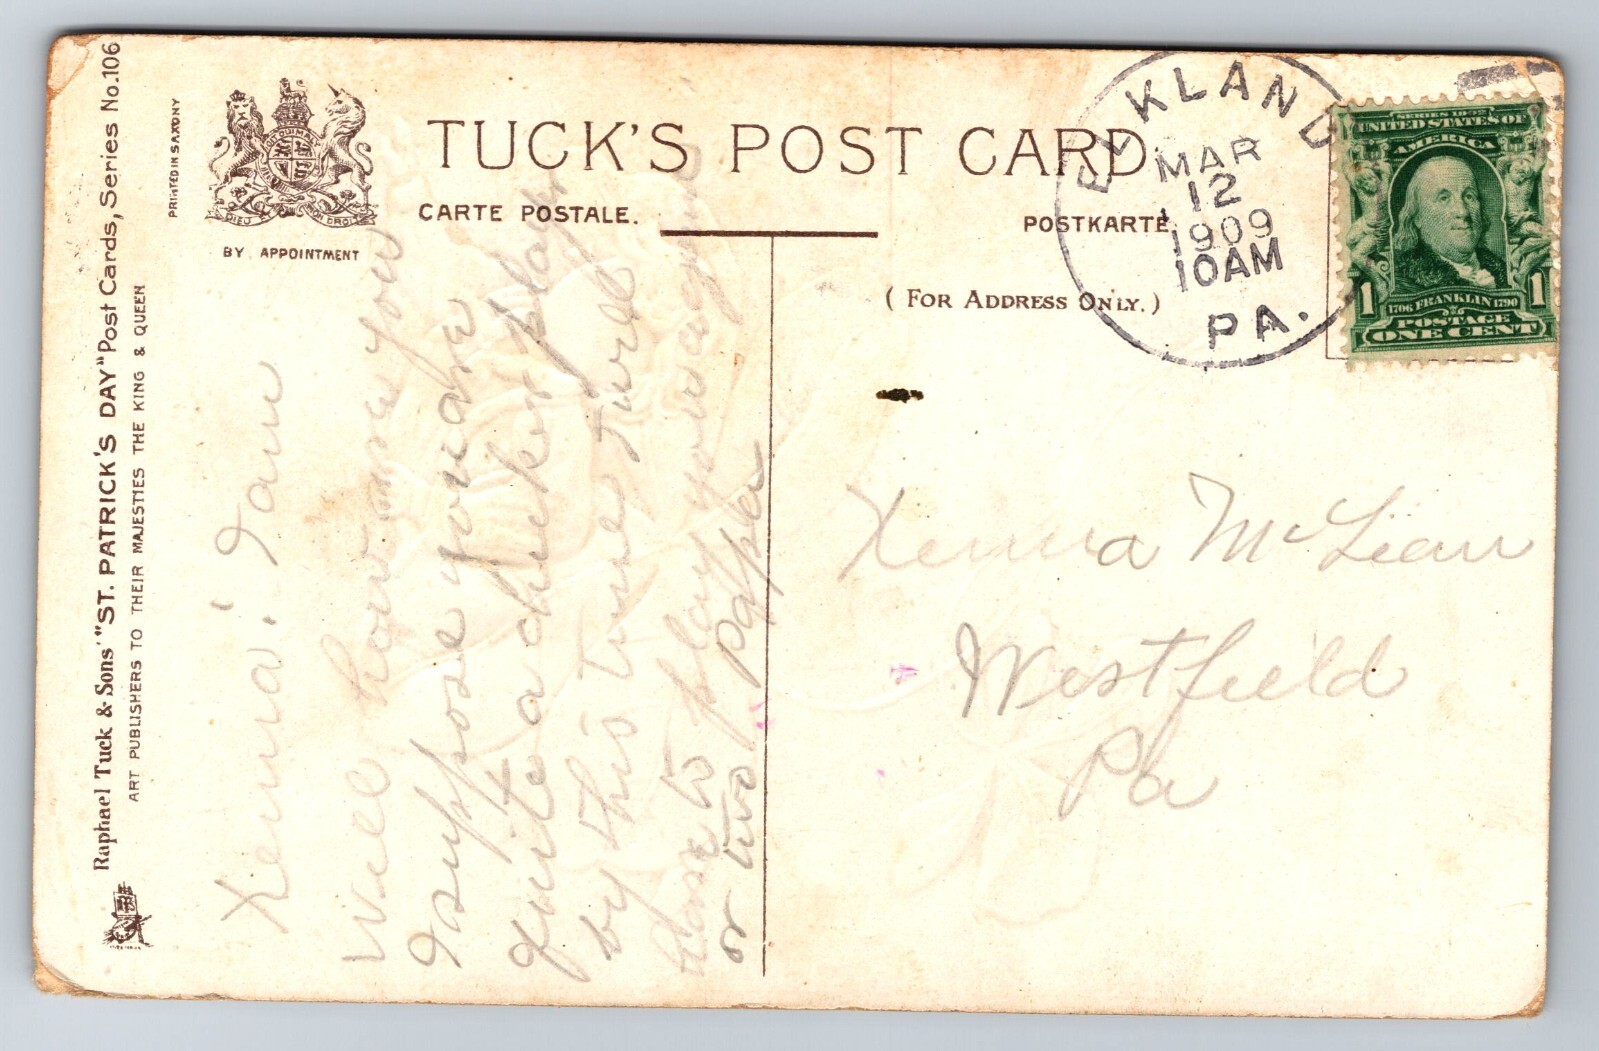 Raphael Tuck & Sons' "ST. PATRICK'S DAY" Post Cards, Series No. 106
ART PUBLISHERS TO THEIR MAJESTIES THE KING & QUEEN
PRINTED IN SAXONY
DIEU ET MON DROIT
BY APPOINTMENT
TUCK'S POST CARD.
CARTE POSTALE.
POSTKARTE.
(FOR ADDRESS ONLY.)
ELKLAND
MAR
12
1909
10AM
PA.
SERIES 1902
UNITED STATES OF
AMERICA
1 1
1706 FRANKLIN 1790
POSTAGE
ONE CENT
Well how are you
I suppose you are
quite a checker player
by this time I will
have to play you a game
or two Pappa
Mc Lean
Westfield
Pa